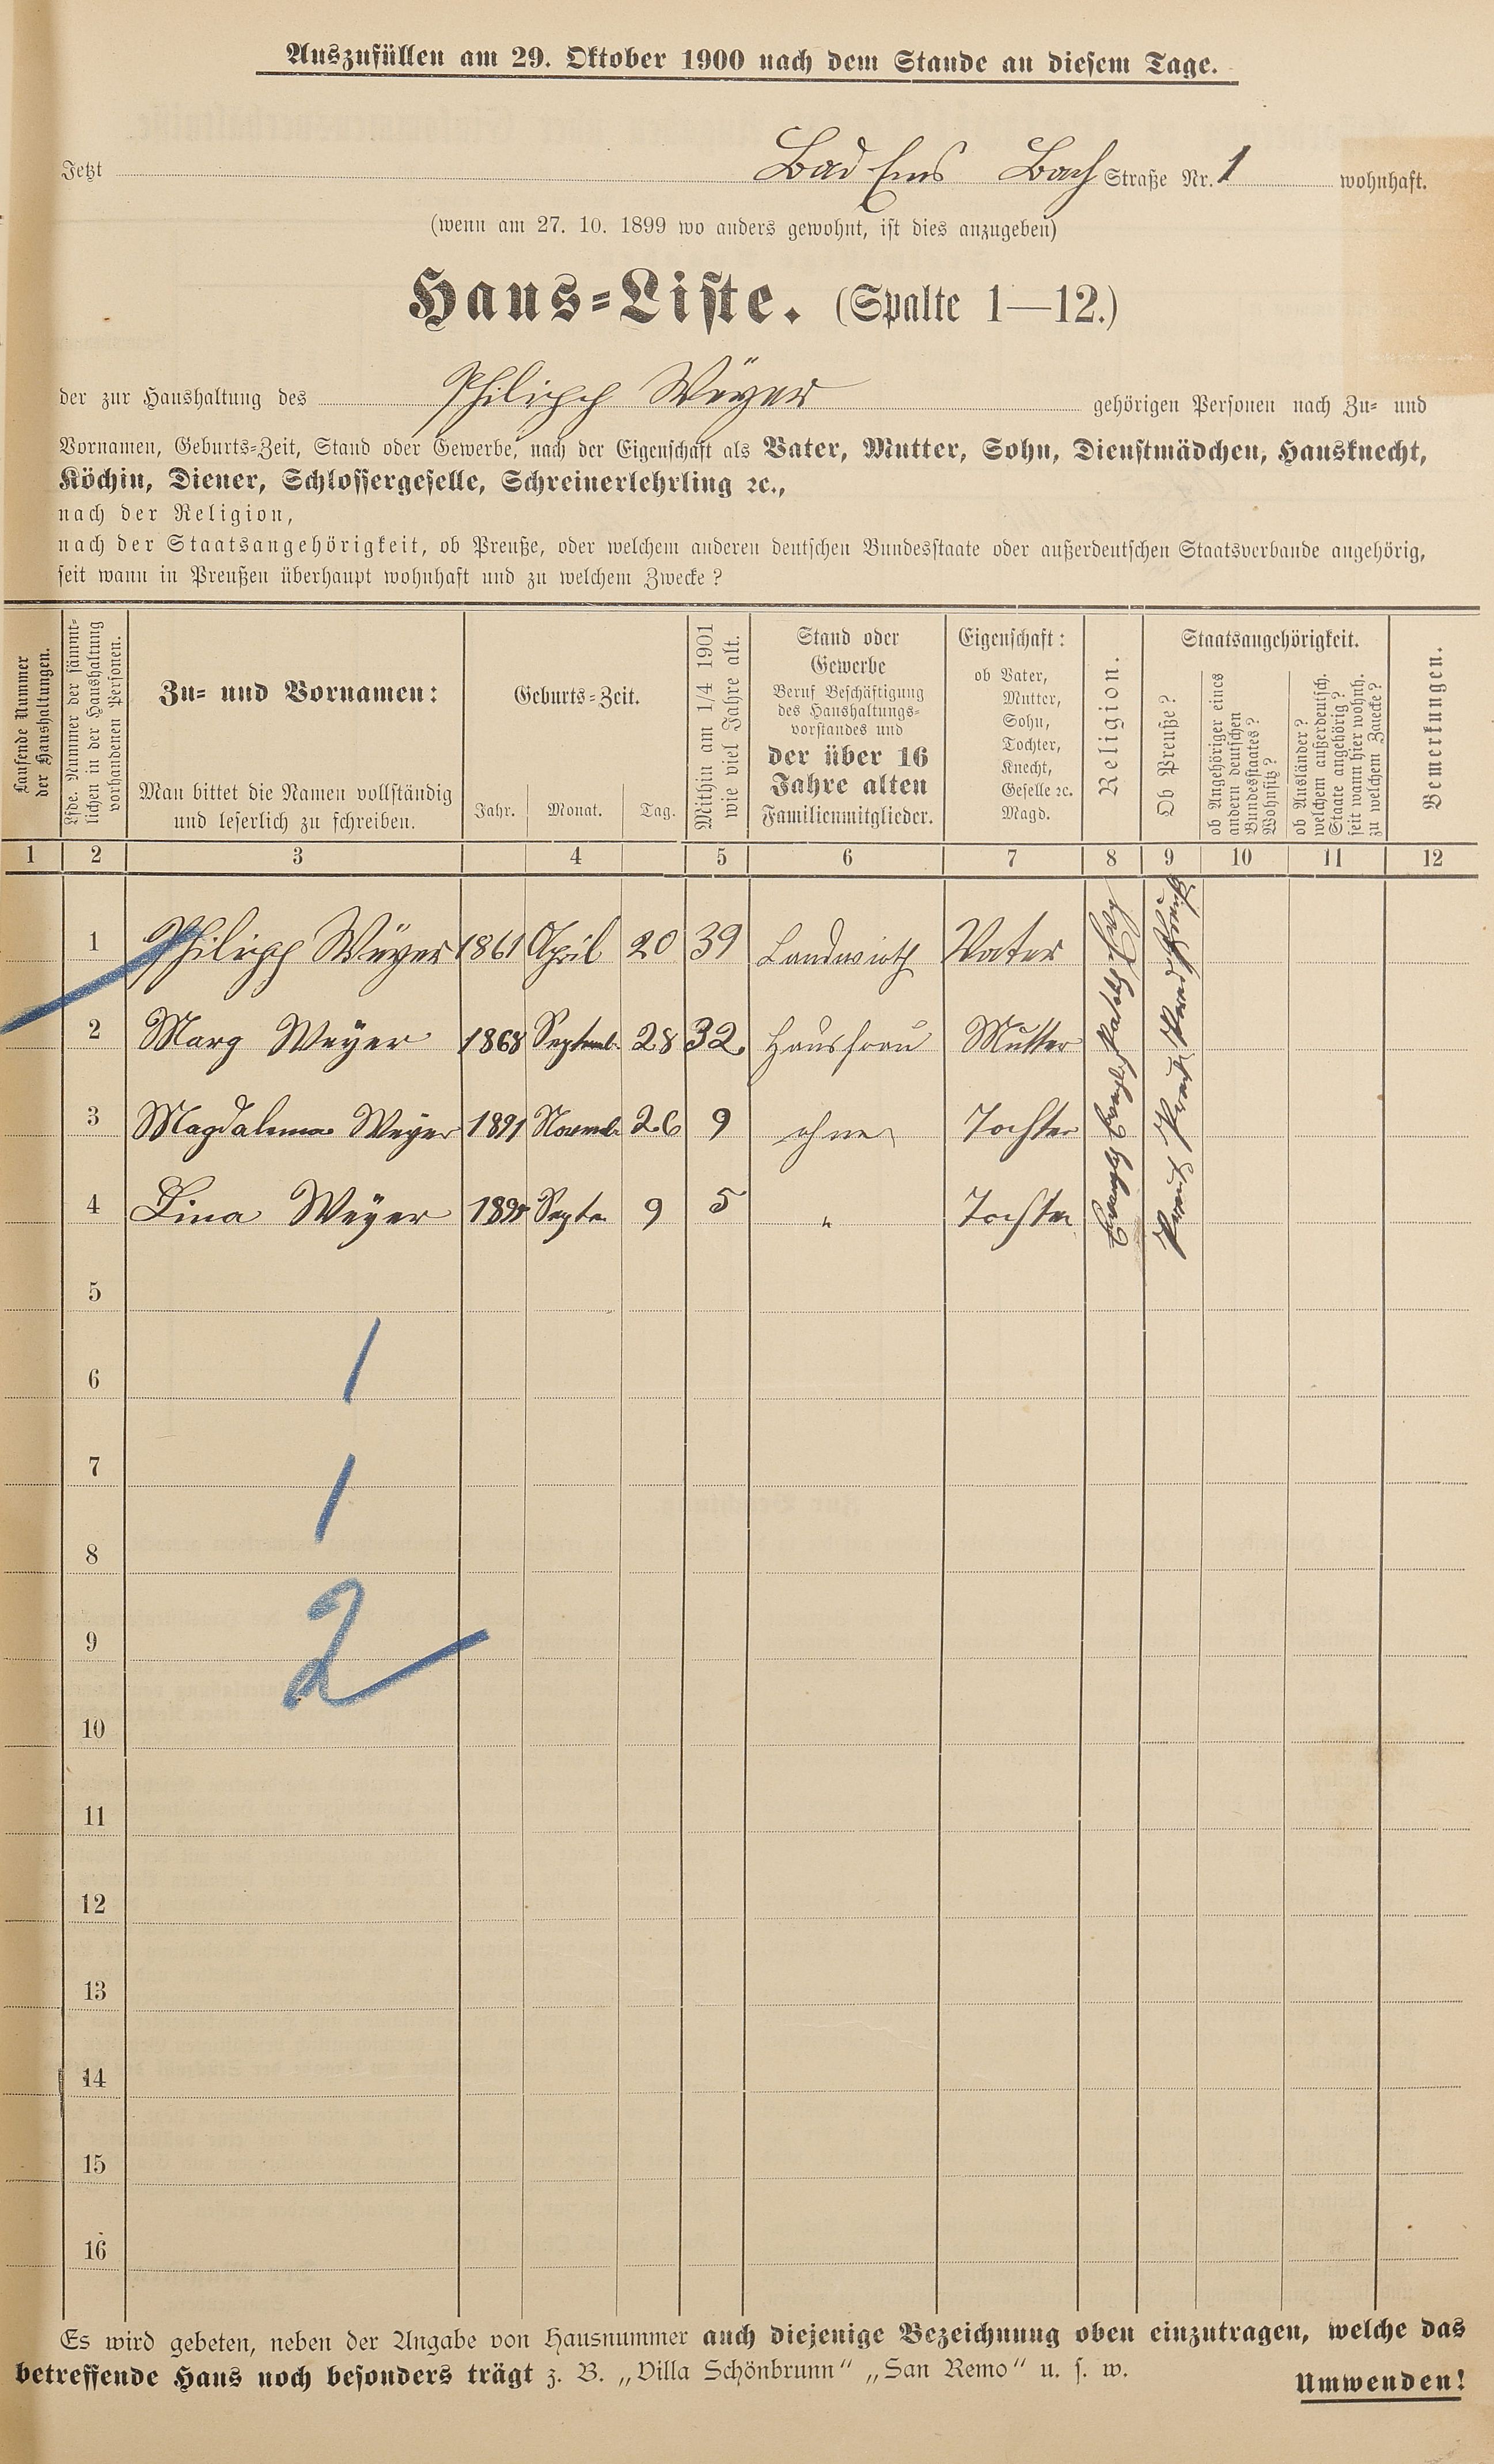 Auszufüllen am 29. Oktober 1900 nach dem Stande an diesem Tage.
Jetzt Bad Ems Bach Straße Nr. 1 wohnhaft.
(wenn am 27. 10. 1899 wo anders gewohnt, ist dies anzugeben)
Haus-Liste. (Spalte 1—12.)
der zur Haushaltung des Philipp Weyer gehörigen Personen nach Zu- und
Vornamen, Geburts-Zeit, Stand oder Gewerbe, nach der Eigenschaft als Vater, Mutter, Sohn, Dienstmädchen, Hausknecht,
Köchin, Diener, Schlossergeselle, Schreinerlehrling ꝛc.,
nach der Religion,
nach der Staatsangehörigkeit, ob Preuße, oder welchem anderen deutschen Bundesstaate oder außerdeutschen Staatsverbande angehörig,
seit wann in Preußen überhaupt wohnhaft und zu welchem Zwecke?
Laufende Nummer
der Haushaltungen.
Lfde. Nummer der sämmt-
lichen in der Haushaltung
vorhandenen Personen.
Zu- und Vornamen:
Man bittet die Namen vollständig
und leserlich zu schreiben.
Geburts-Zeit.
Jahr. Monat. Tag.
Mithin am 1/4 1901
wie viel Jahre alt.
Stand oder
Gewerbe
Beruf Beschäftigung
des Haushaltungs-
vorstandes und
der über 16
Jahre alten
Familienmitglieder.
Eigenschaft:
ob Vater,
Mutter,
Sohn,
Tochter,
Knecht,
Geselle ꝛc.
Magd.
Religion.
Staatsangehörigkeit.
Ob Preuße?
ob Angehöriger eines
andern deutschen
Bundesstaates?
Wohnsitz?
ob Ausländer?
welchem außerdeutsch.
Staate angehörig?
seit wann hier wohnh.
zu welchem Zwecke?
Bemerkungen.
1 2 3 4 5 6 7 8 9 10 11 12
1 Philipp Weyer 1861 April 20 39 Landwirth Vater Preuß
2 Marg Weyer 1868 Septemb. 28 32. Hausfrau Mutter Katolh Preuß
3 Magdalena Weyer 1891 Novemb. 26 9 ohne Tochter Evanglh Preuß
4 Lina Weyer 1895 Septe 9 5 " Tochter Evanglh Preuß
5
6
1
7
1
8
9
2
10
11
12
13
14
15
16
Es wird gebeten, neben der Angabe von Hausnummer auch diejenige Bezeichnung oben einzutragen, welche das
betreffende Haus noch besonders trägt z. B. „Villa Schönbrunn“ „San Remo“ u. s. w.
Umwenden!